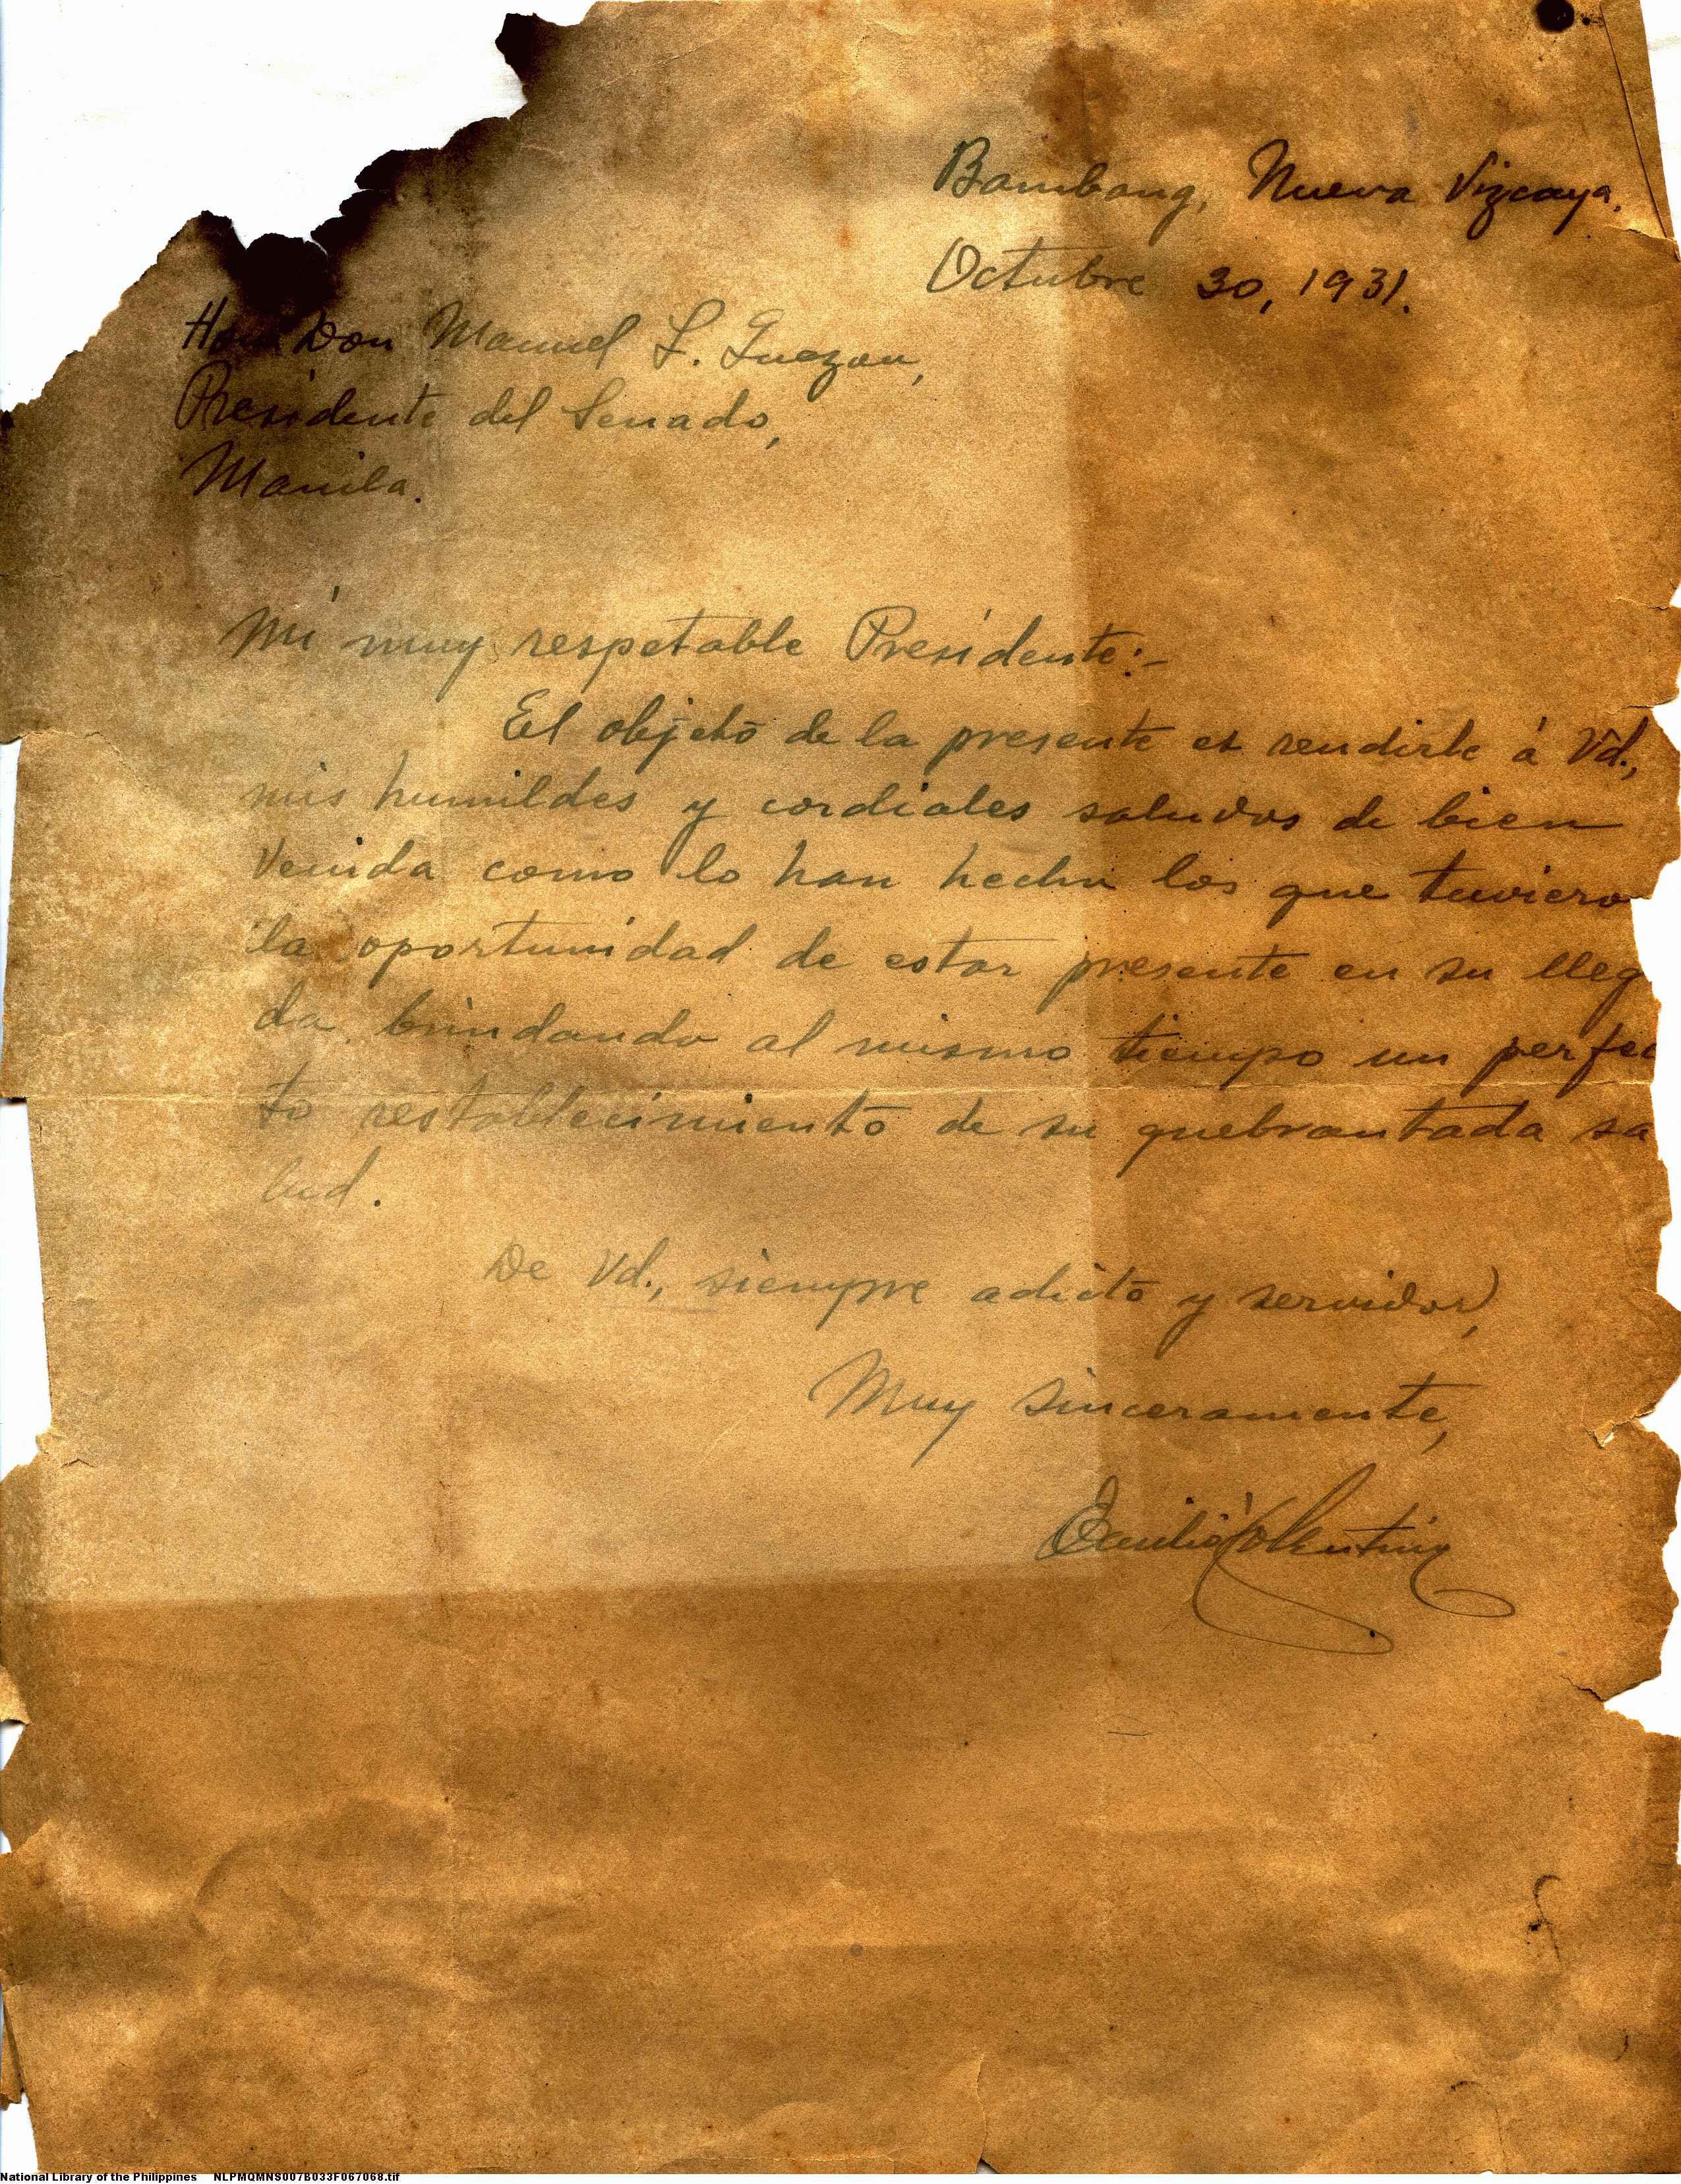 Bambang, Nueva Vizcaya,
Octubre 30, 1931.
Hon. Don Manuel L. Quezon,
Presidente del Senado,
Manila.
Mi muy respetable Presidente:-
El objeto de la presente es rendirle á Vd.,
mis humildes y cordiales saludos de bien
venida como lo han hecho los que tuviero
la oportunidad de estar presente en su lleg
da, brindando al mismo tiempo un perfec
to restablecimiento de su quebrantada sa
lud.
De Vd., siempre adicto y servidor,
Muy sinceramente,
Emilio Valentin
National Library of the Philippines NLPMQMNS007B033F067068.tif